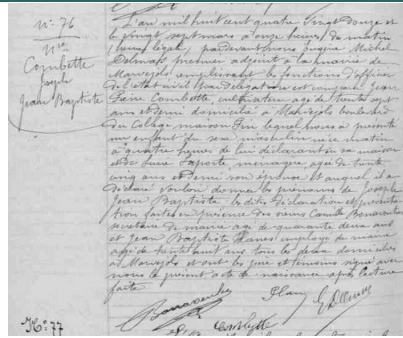 N° 76
Nce
Combette
Joseph
Jean Baptiste
L'an mil huit cent quatre vingt douze et
le vingt sept mars à onze heures du matin
(heure légale) pardevant nous Eugène Michel
Delmas premier adjoint à la mairie de
Marvejols remplissant les fonctions d'officier
de l'état civil par délégation est comparu Jean
Combette, cultivateur agé de trente sept
ans et demi domicilié à Marvejols boulevard
du Collège maison lequel nous a présenté
un enfant du sexe masculin né ce matin
à quatre heures de lui déclarant en sa maison
et de Laporte ménagère agée de trente
cinq ans et demi son épouse et auquel il a
déclaré vouloir donner les prénoms de Joseph
Jean Baptiste les dites déclaration et présenta
tion faites en présence des sieurs Camille Bonaventure
secrétaire de mairie agé de quarante deux ans
et Jean Baptiste Planes employé de mairie
agé de trente ans tous les deux domiciliés
à Marvejols et ont les père et témoins signé avec
nous le présent acte de naissance après lecture
faite
Bonaventure Planes Delmas
Combette
N° 77